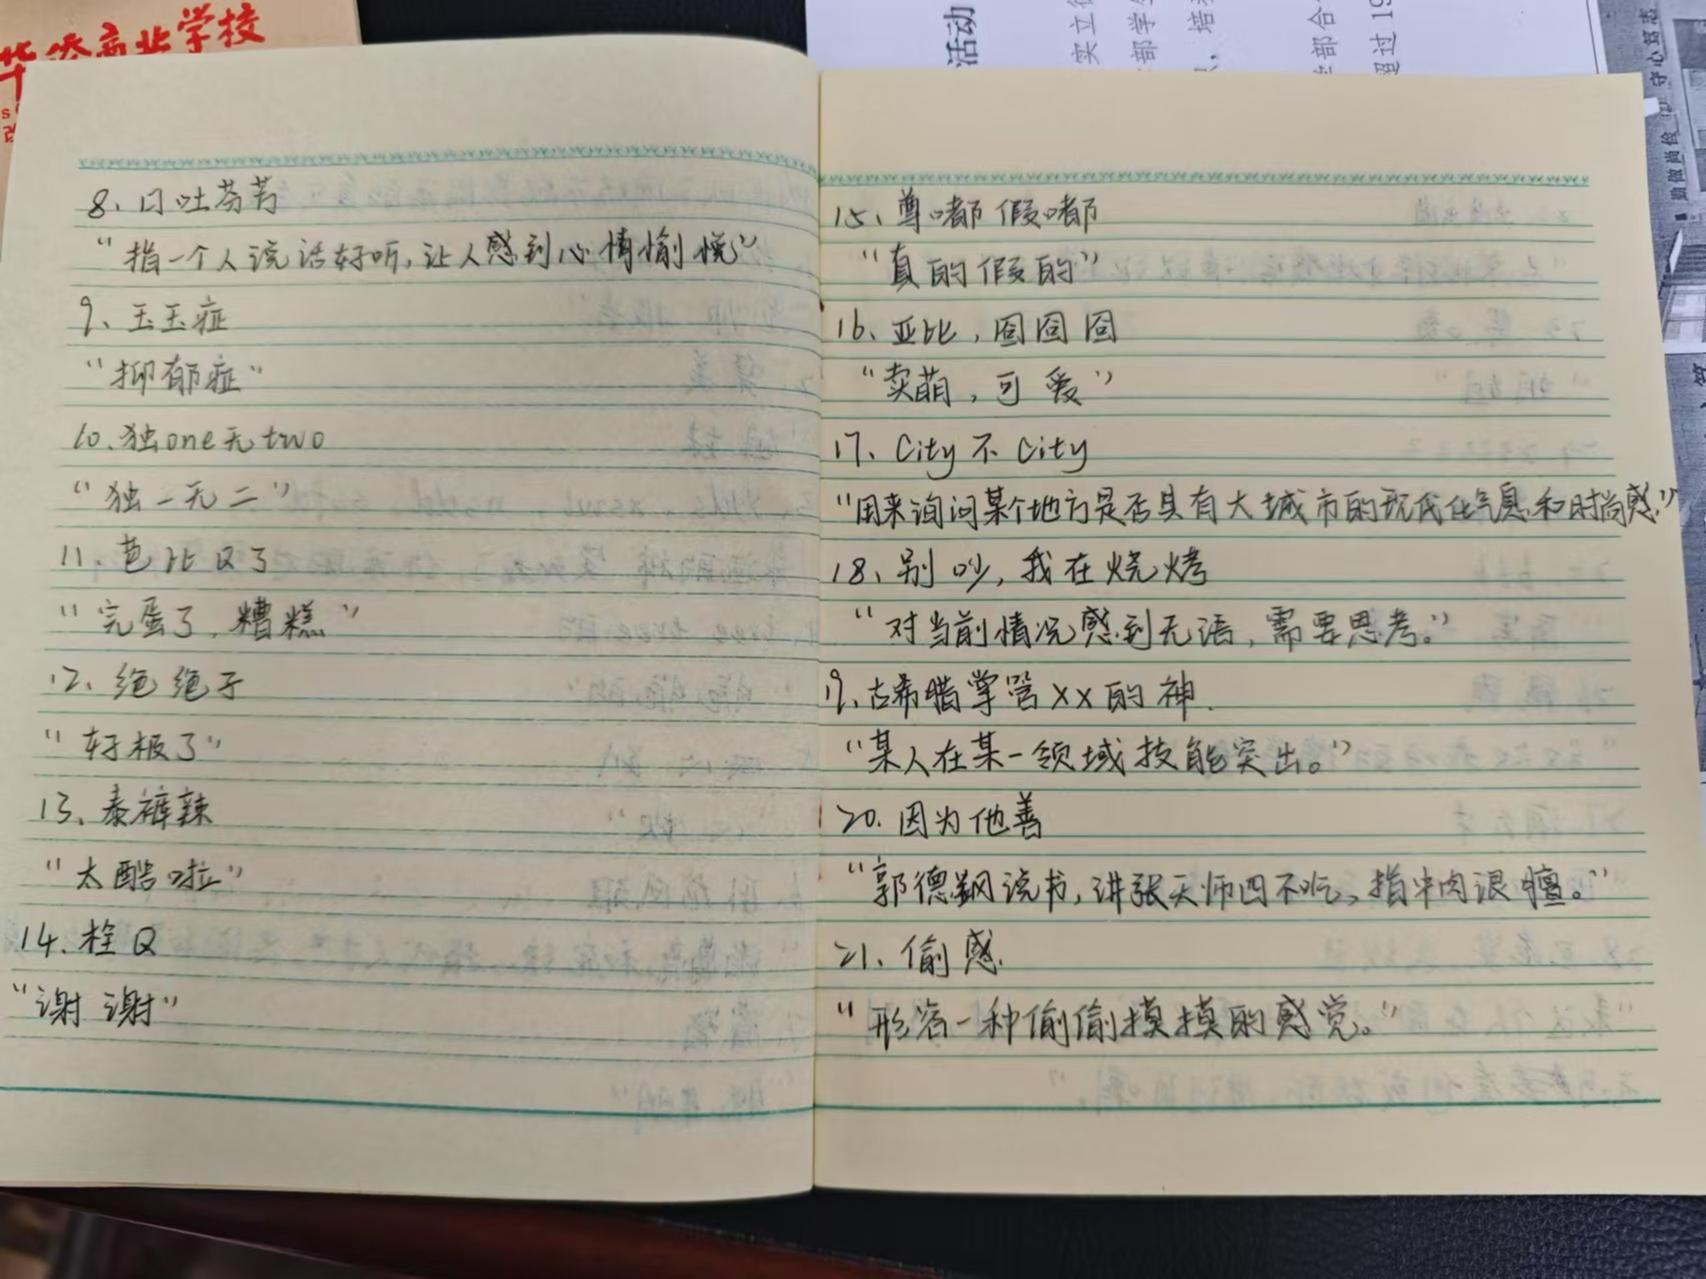 华侨商业学校
活动
守心笃志
勤俭尚俭
8、口吐芬芳
“指一个人说话好听,让人感到心情愉悦”
9、玉玉症
“抑郁症”
10.独one无two
“独一无二”
11、芭比Q了
“完蛋了,糟糕”
12、绝绝子
“好极了”
13、泰裤辣
“太酷啦”
14.栓Q
“谢谢”
15、尊嘟假嘟
“真的假的”
16、亚比,囧囧囧
“卖萌,可爱”
17、City不City
“用来询问某个地方是否具有大城市的现代化气息和时尚感”
18、别吵,我在烧烤
“对当前情况感到无语,需要思考。”
19、古希腊掌管xx的神.
“某人在某一领域技能突出。”
20.因为他善
“郭德纲说书,讲张天师四不吃,指牛肉很膻。”
21、偷感
“形容一种偷偷摸摸的感觉。”